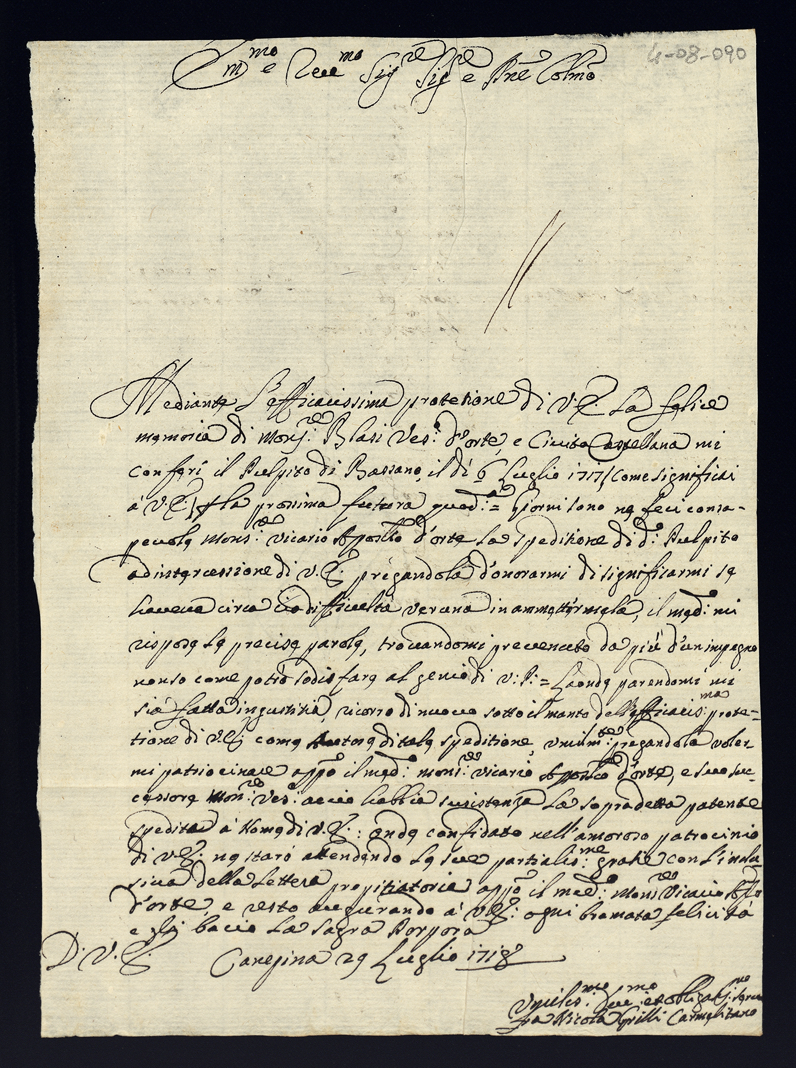 4-08-090
Em.mo e Rev.mo Sig.re Sig.re e Pne Colmo
Mediante l'efficacissima protetione di V. E. la felice
memoria di Mons.r Blasi Ves.o d'Orte, e Civita Castellana mi
conferì il Pulpito di Bassano il dì 6 Luglio 1717 / come significai
à V. E. / la prossima futura quad.a = Giorni sono ne feci consa-
pevole Mons.r Vicario Apostco d'Orte la speditione di d.o Pulpito
ad intercessione di V. E. pregandola d'onorarmi di significarmi se
haveva circa ciò difficultà veruna in ammettermela, il med.o mi
rispose le precise parole, trovandomi prevenuto da più d'un impegno
non so come potrò sodisfare al genio di V. P. = Laonde parendomi mi
sia fatta ingiustitia, ricorro di nuovo sotto il manto dell'efficacis.ma prote-
tione di V. E. come Autore di tale speditione, umilm.te pregandola voler-
mi patrocinare appo il med.o Mons.r Vicario Apostco d'Orte, e suo suc-
cessore Mons.r Ves.o acciò habbia sussistenza la sopradetta patente
spedita à nome di V. E.: onde confidato nell'amoroso patrocinio
di V. E. ne starò attendendo le sue partialis.me gratie con l'inclu-
siva della lettera propitiatoria appo il med.o Mons.r Vicario Aplo
d'Orte, e resto augurando à V. E. ogni bramata felicità
e gli bacio la Sagra Porpora
D. V. E. Canepina 29 Luglio 1718
Umilis.mo Dev.mo et obligatis.mo Serv.
fra Nicola Carmelitano